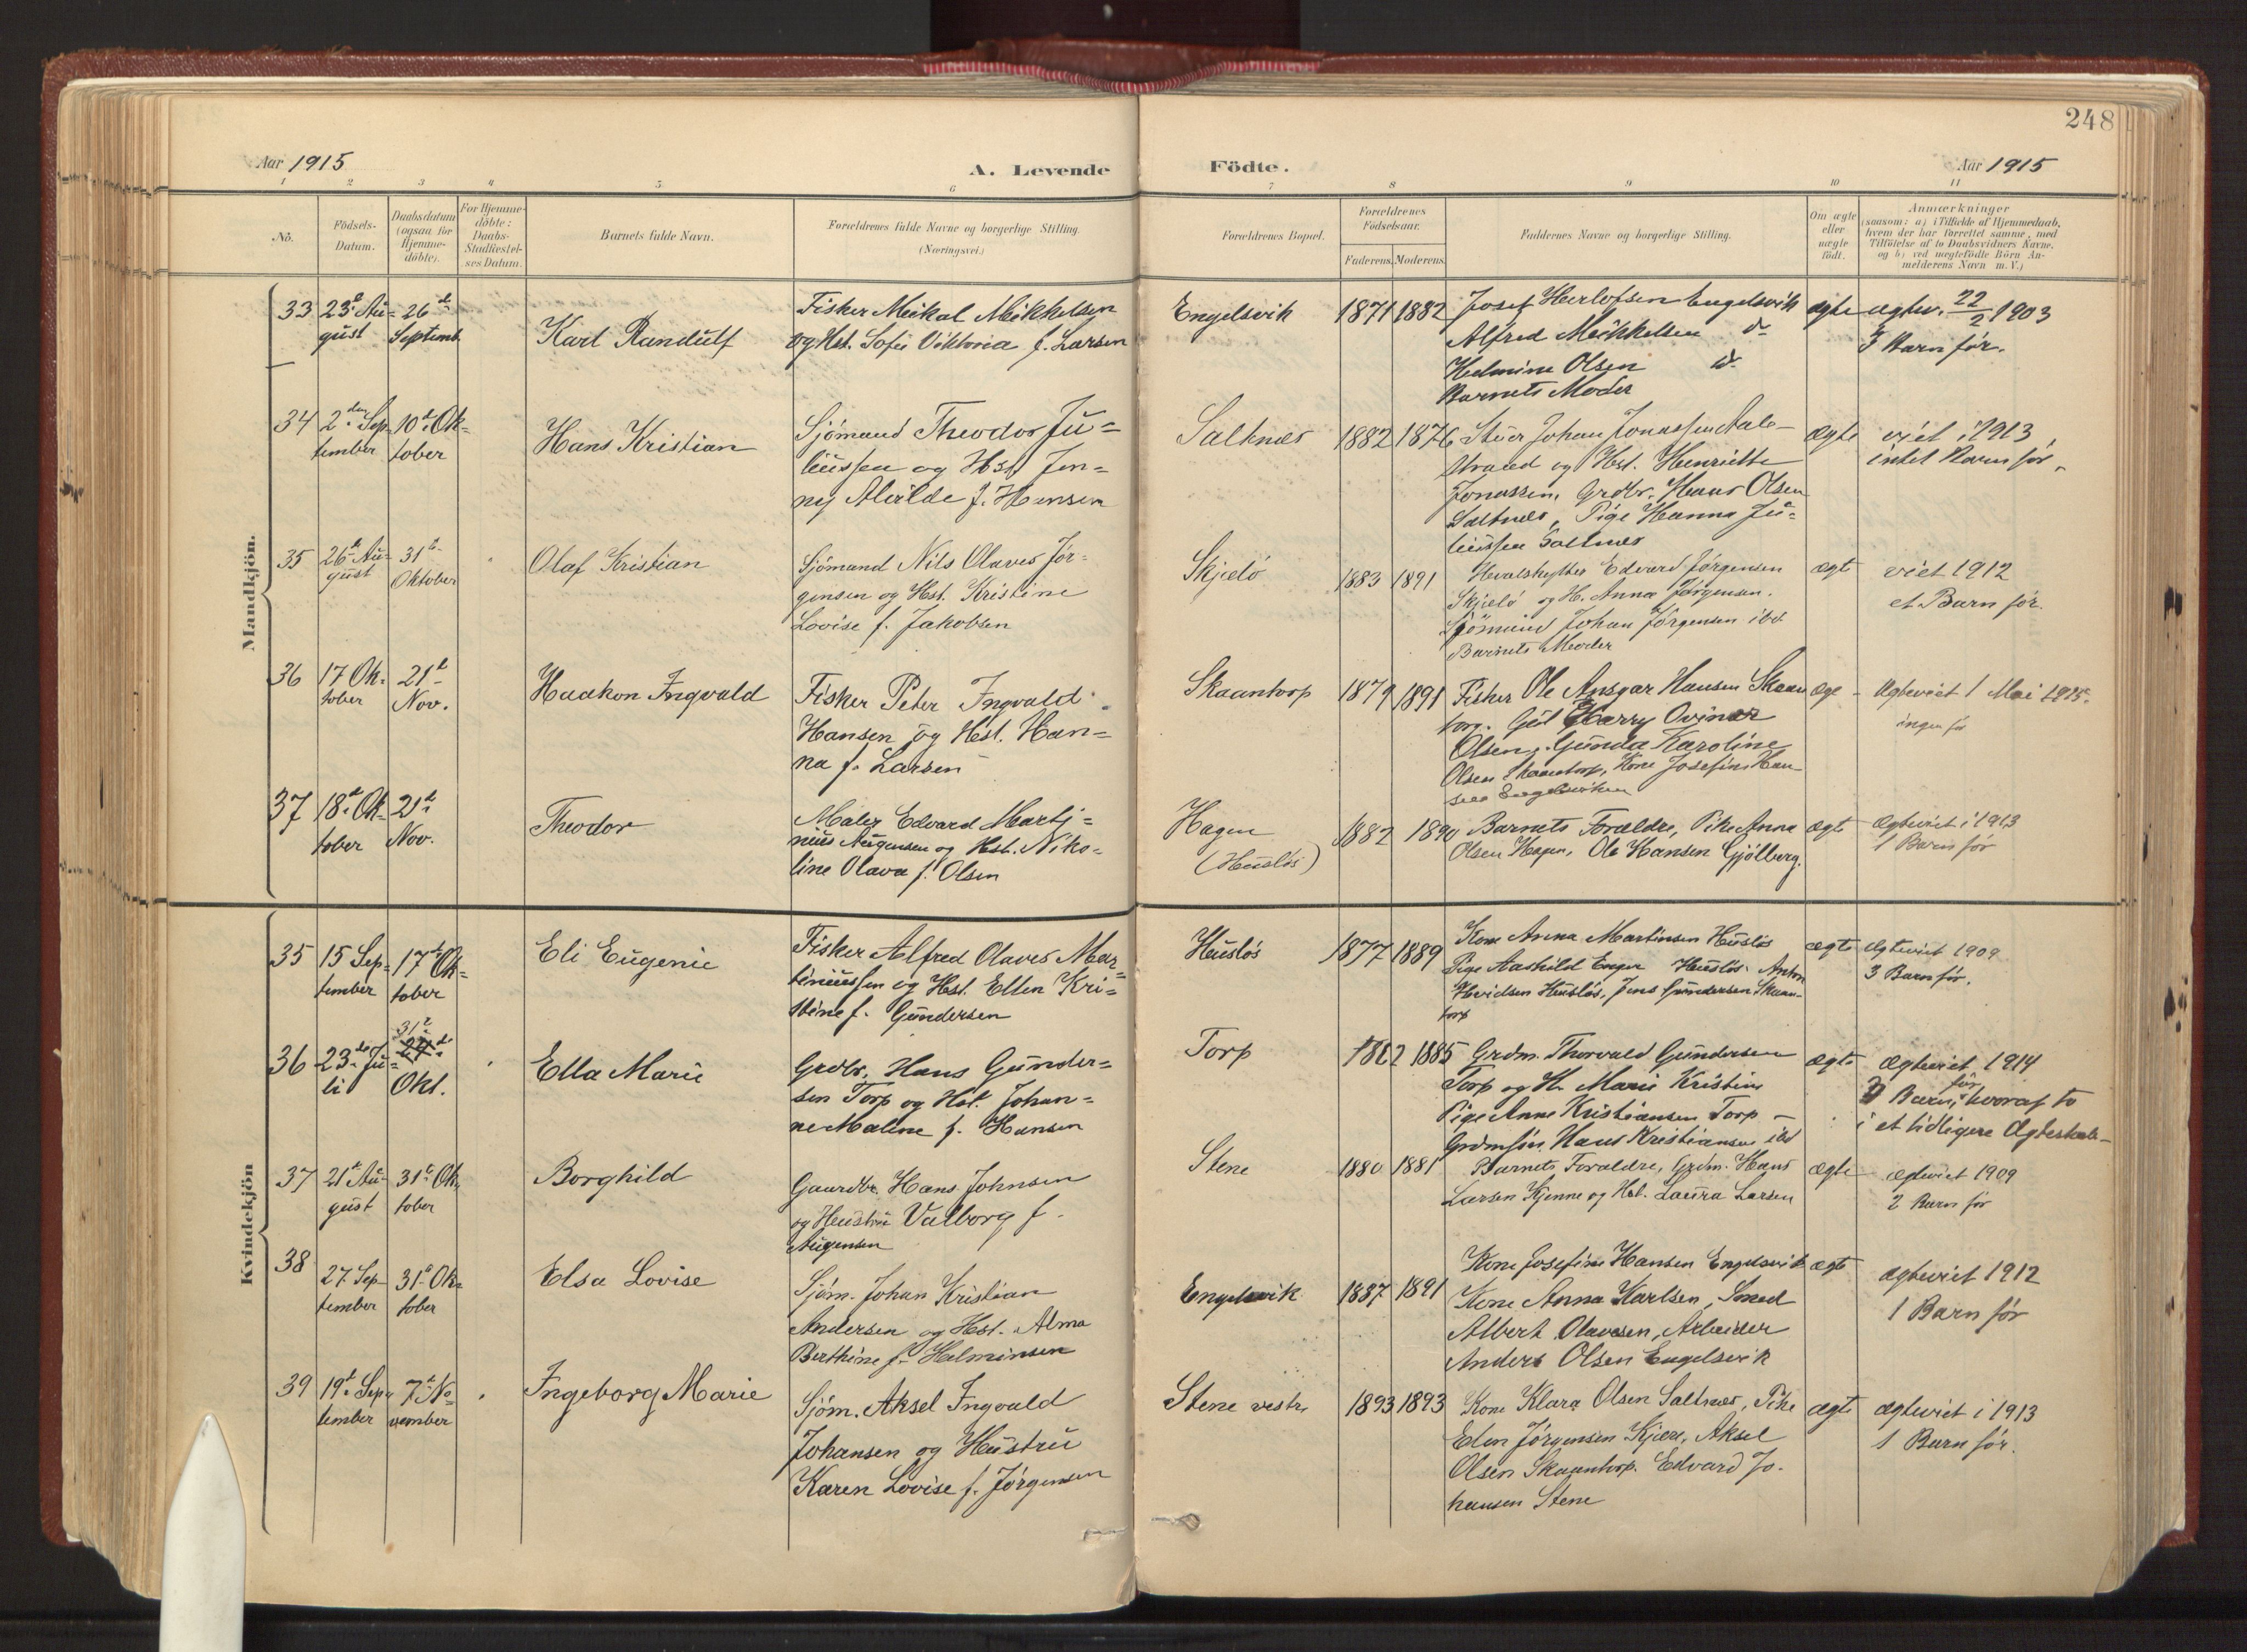 248
Aar 1915
A. Levende Födte.
Aar 1915
1 2 3 4 5 6 7 8 9 10 11
No.
Födsels-
Datum.
Daabsdatum
(ogsaa for
Hjemme-
döbte).
For Hjemme-
döbte:
Daabs-
Stadfæstel-
ses Datum.
Barnets fulde Navn.
Forældrenes fulde Navne og borgerlige Stilling.
(Næringsvei.)
Forældrenes Bopæl.
Forældrenes
Födselsaar.
Faderens. Moderens.
Faddernes Navne og borgerlige Stilling.
Om ægte
eller
uægte
födt.
Anmærkninger
(saasom: a) i Tilfælde af Hjemmedaab,
hvem der har forrettet samme, med
Tilföielse af to Daabsvidners Navne,
og b) ved uægtefödte Börn An-
melderens Navn m. V.)
Mandkjön.
33
23d Au-
gust
26d
Septemb.
Karl Randulf
Fisker Mikal Mikkelsen
og Hst. Sofie Viktoria f. Larsen
Engelsvik
1871 1882
Josef Herlofsen Engelsvik
Alfred Mikkelsen do
Helmine Olsen do
Barnets Moder
ægte
ægtev. 22/2 1903
5 Barn før.
34
2den Sep-
tember
10d Ok-
tober
Hans Kristian
Sjömand Theodor Ju-
liussen og Hst. Jen-
ny Alvilde f. Hansen
Saltnes
1882 1876
Stuer Johan Jonassen Aale-
strand og Hst. Henriette
Jonassen, Grdbr. Hans Olsen
Saltnes, Pige Hanna Ju-
liussen Saltnes
ægte
viet i 1913
intet Barn før.
35
26d Au-
gust
31t
Oktober
Olaf Kristian
Sjömand Nils Olaves Jör-
gensen og Hst. Kristine
Lovise f. Jakobsen
Skjælö
1883 1891
Hvalskytter Edvard Jørgensen
Skjælö og H. Anna Jørgensen.
Sjömand Johan Jörgensen ibd
Barnets Moder
ægte
viet 1912
et Barn før.
36
17 Ok-
tober
21d
Nov.
Haakon Ingvald
Fisker Peter Ingvald
Hansen og Hst. Han-
na f. Larsen
Skaantorp
1879 1891
Fisker Ole Ansgar Hansen Skaan
torp. Gut Harry Ovinar
Olsen, Gunda Karoline
Olsen Skaantorp, Kone Josefine Han-
sen Engelsviken
æge
Ægteviet 1 Mai 1915.
ingen før
37
18d Ok-
tober
21d
Nov.
Theodor
Maler Edvard Martj-
nius Augensen og Hst. Niko-
line Olava f. Olsen
Hagen
(Husløs)
1882 1890
Barnets Forældre, Pike Anna
Olsen Hagen, Ole Hansen Gjölberg.
ægte
Ægteviet i 1913
1 Barn før
Kvindekjön
35
15 Sep-
tember
17d Ok-
tober
Eli Eugenie
Fisker Alfred Olaves Mar-
tiniussen og Hst. Ellen Kri-
stine f. Gundersen
Husløs
1877 1889
Kone Anna Martinsen Husløs
Pige Aashild Enger Husløs. Anton
Husløs, Jens Gundersen Skaan-
torp
ægte
Ægteviet 1909
3 Barn før.
36
23de Ju-
li
31t 24de
Okt.
Ella Marie
Grdbr. Hans Gunder-
sen Torp og Hst. Johan-
ne Maline f. Hansen
Torp
1885
Grdm. Thorvald Gundersen
Torp og H. Marie Kristine
Pige Anne Kristiansen Torp
Grdmsön Hans Kristiansen ibd
ægte
Ægteviet 1914
3 Barn før, hvoraf to
i et tidligere Ægteskab
37
21d Au-
gust
31t Ok-
tober
Borghild
Gaardbr. Hans Johnsen
og Hustru Valborg f.
Augensen
Stene
1880 1881
Barnets Forældre, Grdm. Hans
Larsen Kjenne og Hst. Laura Larsen
ægte
ægteviet 1909
2 Barn før
38
27 Sep-
tember
31t Ok-
tober
Elsa Lovise
Sjöm. Johan Kristian
Andersen og Hst. Alma
Berthine f. Helminsen
Engelsvik
1887 1891
Kone Josefine Hansen Engelsvik
Kone Anna Karlsen, Smed
Albert Olavesen, Arbeider
Anders Olsen Engelsvik
ægte
Ægteviet 1912
1 Barn før
39
19d Sep-
tember
7d No-
vember
Ingeborg Marie
Sjöm. Aksel Ingvald
Johansen og Hustru
Karen Lovise f. Jörgensen
Stene vestre
1893 1893
Kone Klara Olsen Saltnes, Pike
Elen Jörgensen Kjære, Aksel
Olsen Skaantorp. Edvard Jo-
hansen Stene
ægte
ægteviet i 1913
1 Barn før.